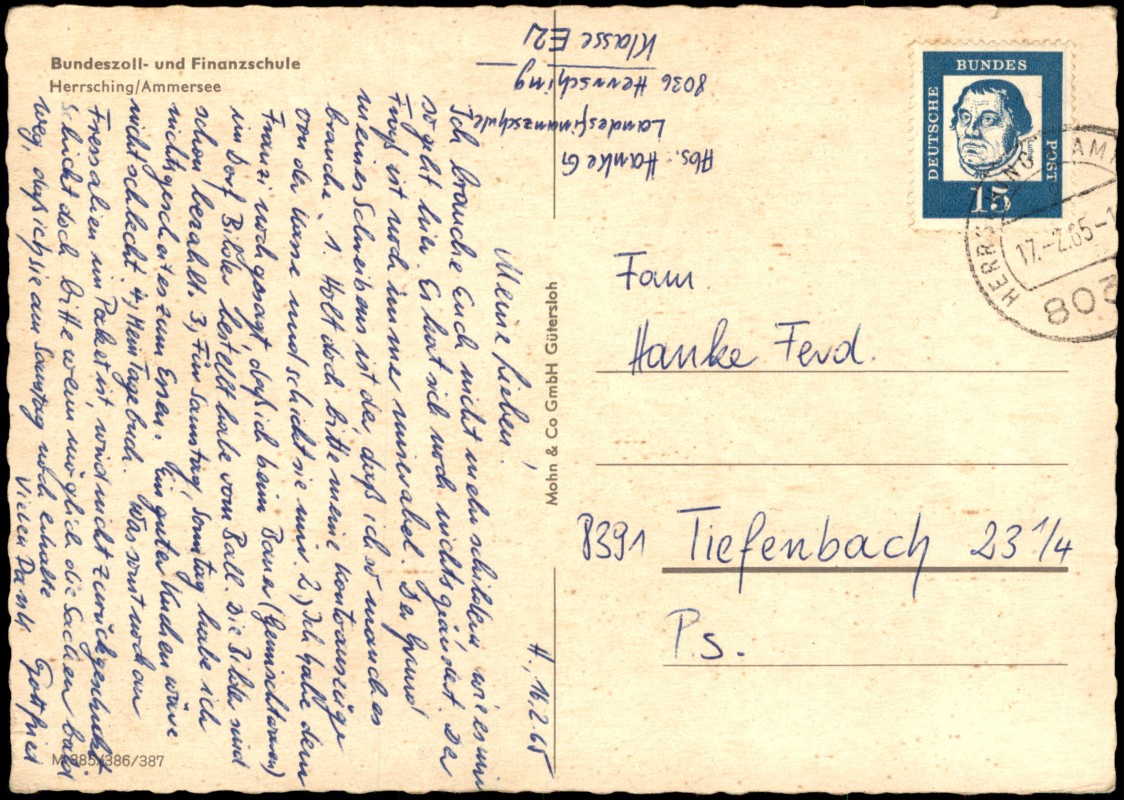 Bundeszoll- und Finanzschule
Herrsching/Ammersee
H., 16.2.65
Meine Lieben!
Ich brauche Euch nicht mehr schildern wie es mir
so geht hier. Es hat sich noch nichts geändert. Der
Fraß ist noch immer miserabel. Der Grund
meines Schreibens ist der, daß ich so manches
brauche. 1. Holt doch bitte meine Kontoauszüge
von der Kasse und schickt sie mir. 2.) Ich habe dem
Franzi noch gesagt daß ich beim Bauer (Gemischtwaren)
im Dorf Bilder bestellt habe vom Ball. Die Bilder sind
schon bezahlt. 3, Für Samstag, Sonntag habe ich
nichts gescheites zum Essen. Ein guter Kuchen wäre
nicht schlecht. 4, Mein Tagebuch. Was sonst noch an
Fressalien im Paket ist, wird nicht zurückgeschickt.
Schickt doch bitte wenn möglich die Sachen bald
weg, daß ich sie am Samstag noch erhalte
Vielen Dank Gottfried
M 385/386/387
Mohn & Co GmbH Gütersloh
Abs. Hanke G
Landesfinanzschule
8036 Herrsching
Klasse E2
DEUTSCHE
BUNDES
POST
15
HERRSCHING
AMM
17.-2.65-1
808
Fam.
Hanke Ferd.
8391 Tiefenbach 23 1/4
Ps.